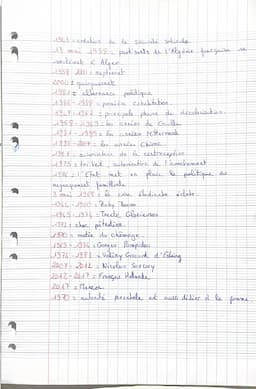 1945 : création de la sécurité sociale
13 mai 1958 : partisans de l'Algérie française se
à Alger.
1958 - 2001 : septennat
2000 : quinquennat
1981 : alternance politique
1986 - 1988 : première cohabitation.
1947 - 1962 : principale phase de décolonisation.
1958 - 1969 : les années de Gaulle
1981 - 1995 : les années Mitterrand
1995 - 2007 : les années Chirac
1967 : autorisation de la contraception
1975 : loi Veil, autorisation de l'avortement
1976 : l'État met en place la politique du
regroupement familiale
3 mai 1968 : la crise étudiante éclate.
1945 - 1975 : Trente Glorieuses
1973 : choc pétrolier
1969 - 1974 : Georges Pompidou
1974 - 1981 : Valéry Giscard d'Estaing
2007 - 2012 : Nicolas Sarkozy
2012 - 2017 : François Hollande
2017 : Macron
1970 : autorité parentale est aussi à la femme.